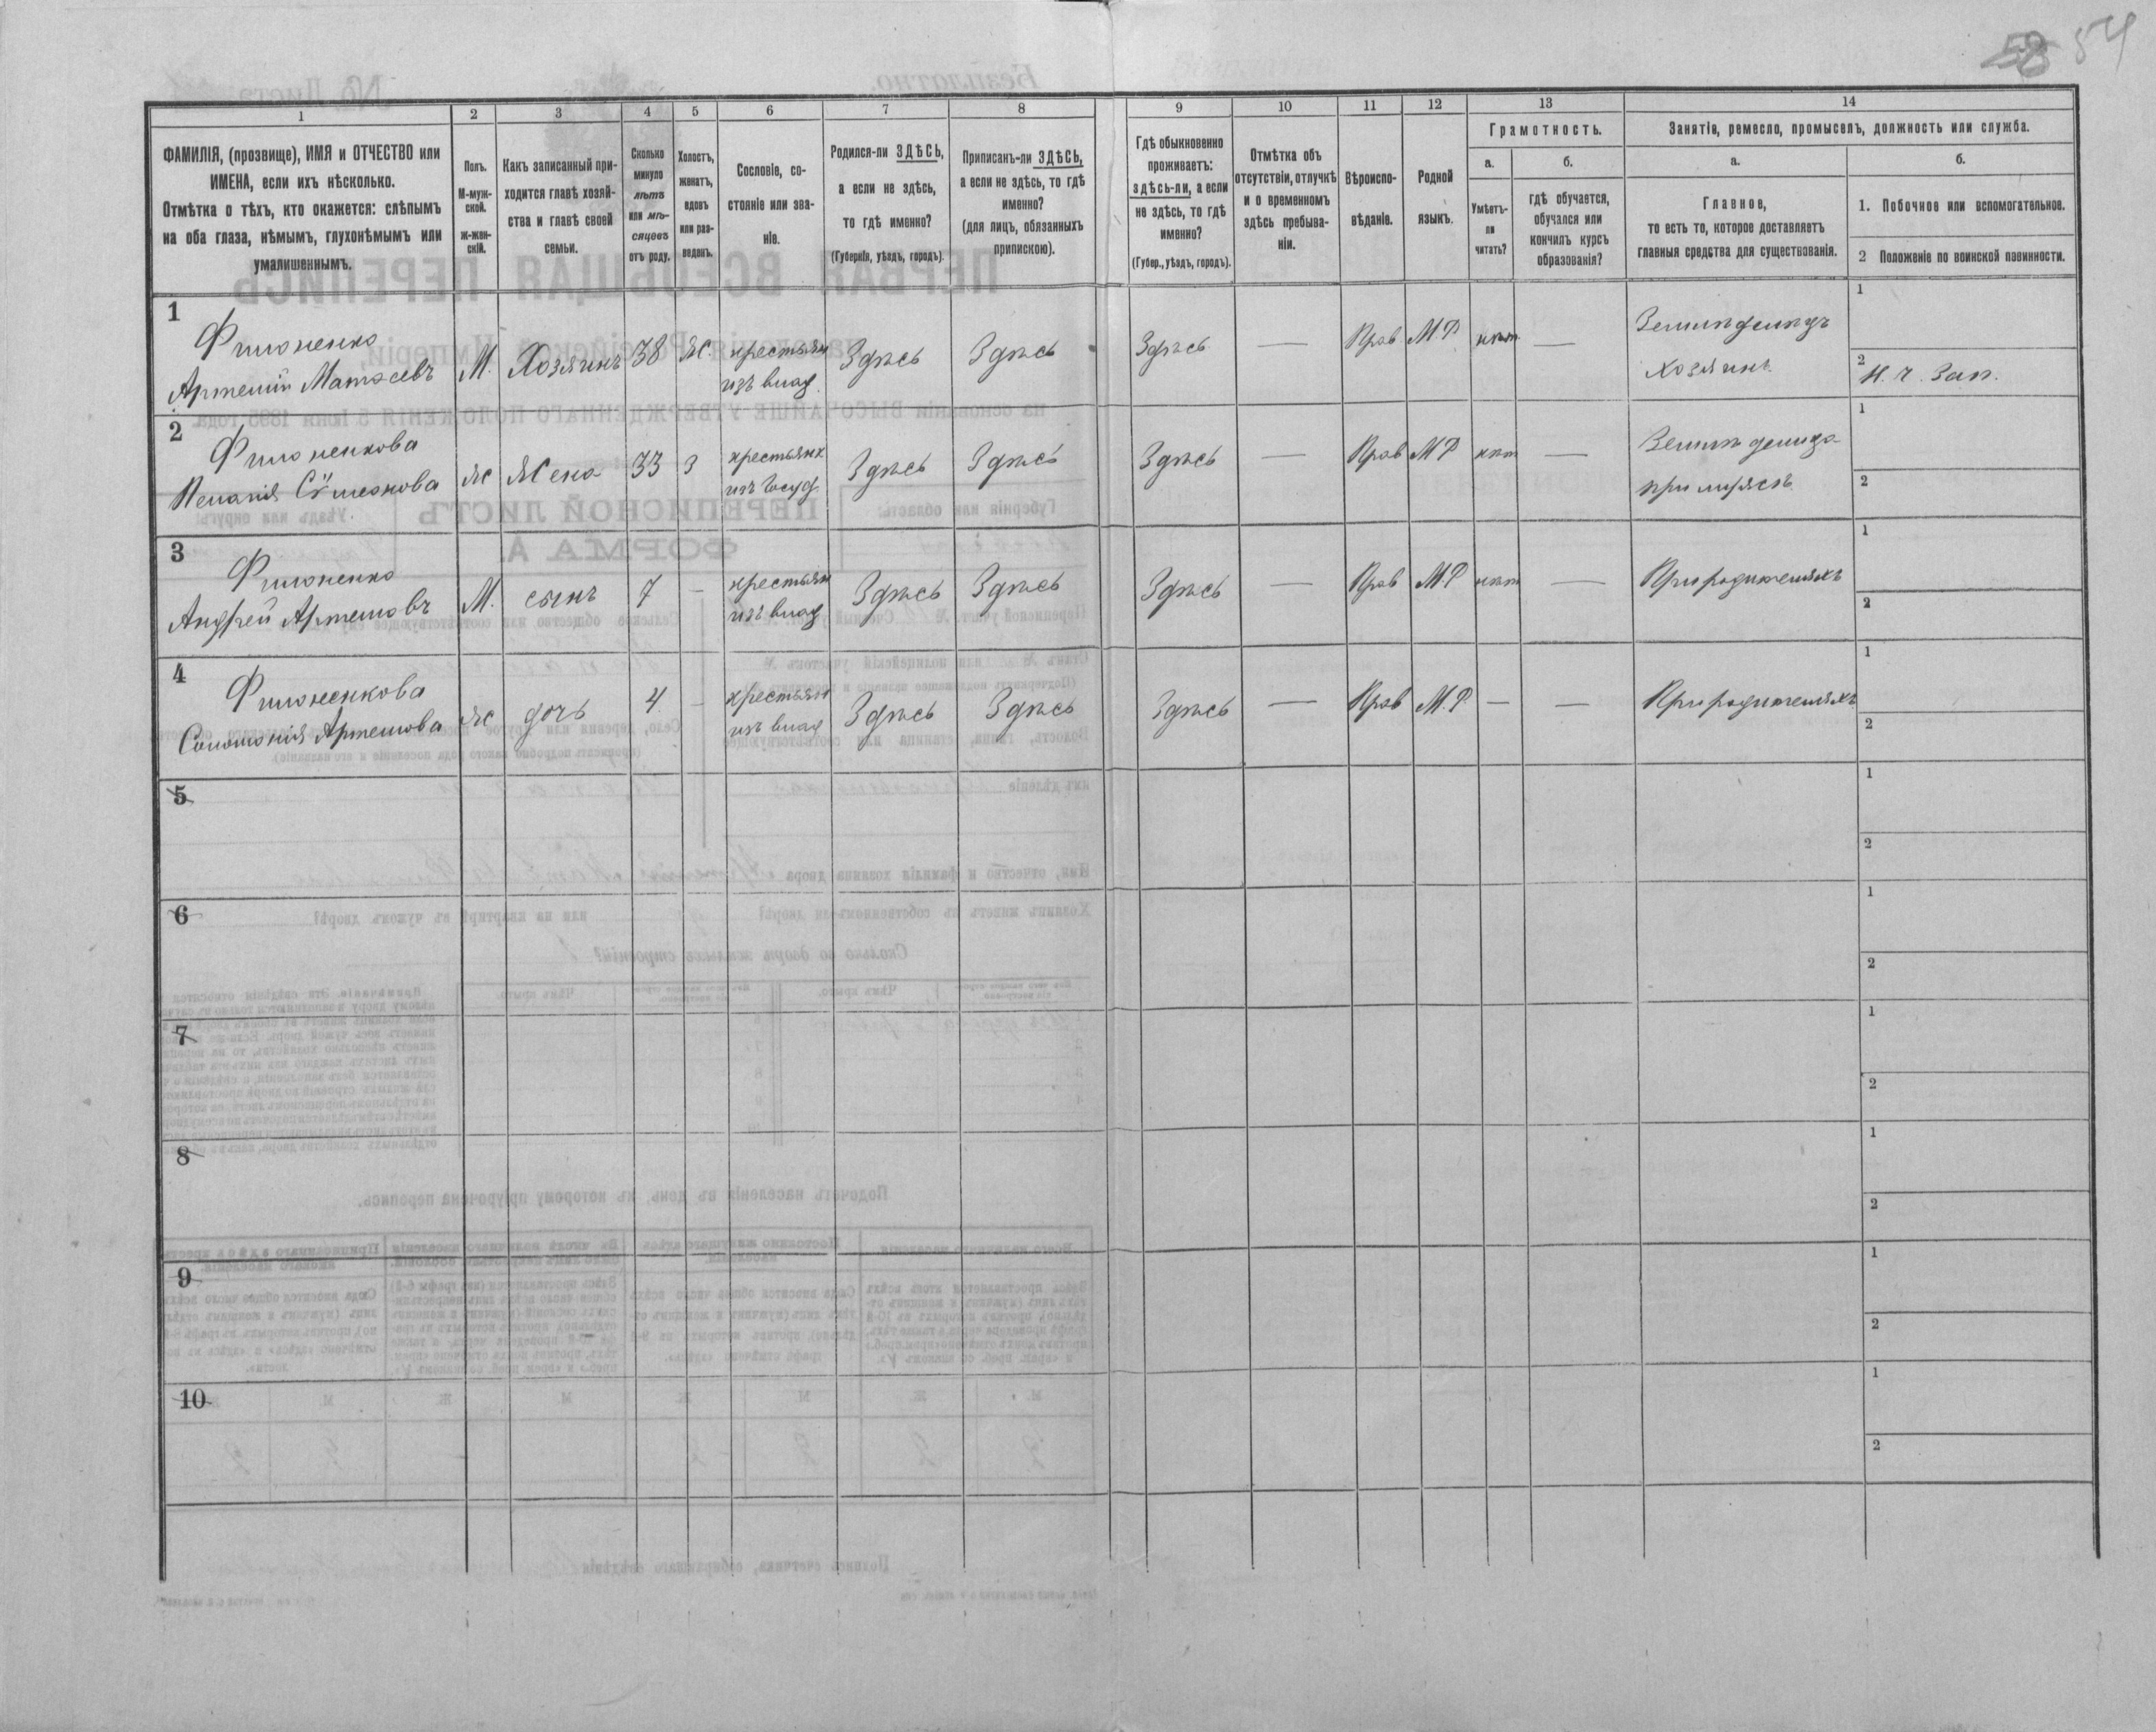 58 54
1
2
3
4
5
6
7
8
9
10
11
12
13
14
ФАМИЛІЯ, (прозвище), ИМЯ и ОТЧЕСТВО или
ИМЕНА, если ихъ нѣсколько.
Отмѣтка о тѣхъ, кто окажется: слѣпымъ
на оба глаза, нѣмымъ, глухонѣмымъ или
умалишеннымъ.
Полъ.
М-муж-
ской.
ж-жен-
скій.
Какъ записанный при-
ходится главѣ хозяй-
ства и главѣ своей
семьи.
Сколько
минуло
лѣтъ
или мѣ-
сяцевъ
отъ роду.
Холостъ,
женатъ,
вдовъ
или раз-
веденъ.
Сословіе, со-
стояніе или зва-
ніе.
Родился-ли ЗДѢСЬ,
а если не здѣсь,
то гдѣ именно?
(Губернія, уѣздъ, городъ).
Приписанъ-ли ЗДѢСЬ,
а если не здѣсь, то гдѣ
именно?
(для лицъ, обязанныхъ
припискою).
Гдѣ обыкновенно
проживаетъ:
здѣсь-ли, а если
не здѣсь, то гдѣ
именно?
(Губер., уѣздъ, городъ).
Отмѣтка объ
отсутствіи, отлучкѣ
и о временномъ
здѣсь пребыва-
ніи.
Вѣроиспо-
вѣданіе.
Родной
языкъ.
Грамотность.
а.
б.
Умѣетъ-
ли
читать?
гдѣ обучается,
обучался или
кончилъ курсъ
образованія?
Занятіе, ремесло, промыселъ, должность или служба.
а.
б.
Главное,
то есть то, которое доставляетъ
главныя средства для существованія.
1. Побочное или вспомогательное.
2 Положеніе по воинской повинности.
1
Филоненко
Артемій Матѳеевъ
М. Хозяинъ 38 Ж.
крестьян
изъ влад.
Здѣсь Здѣсь Здѣсь — Прав М.Р нѣт —
Земледѣлецъ
хозяинъ
1
2
Н. ч. Зап.
2
Филоненкова
Пелагія Сѵмеонова
Ж Жена 33 З
крестьянк
изъ Госуд.
Здѣсь Здѣсь Здѣсь — Прав М Р нѣт —
Земледѣлица
при мужѣ
1
2
3
Филоненко
Андрей Артемовъ
М. сынъ 7 —
крестьян
изъ влад
Здѣсь Здѣсь Здѣсь — Прав М.Р нѣт —
При родителяхъ
1
2
4
Филоненкова
Соломонія Артемова
Ж дочь 4. —
крестьян
изъ влад
Здѣсь Здѣсь Здѣсь — Прав М.Р. — —
При родителяхъ
1
2
5
1
2
6
1
2
7
1
2
8
1
2
9
1
2
10
1
2